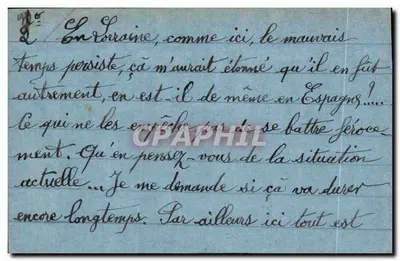 No
2 / En Lorraine, comme ici, le mauvais
temps persiste, çà m'aurait étonné qu'il en fût
autrement, en est-il de même en Espagne?.....
Ce qui ne les empêche pas de se battre féroce-
CPARHIL
ment. Qu'en pensez-vous de la situation
actuelle... Je me demande si çà va durer
encore longtemps. Par ailleurs ici tout est